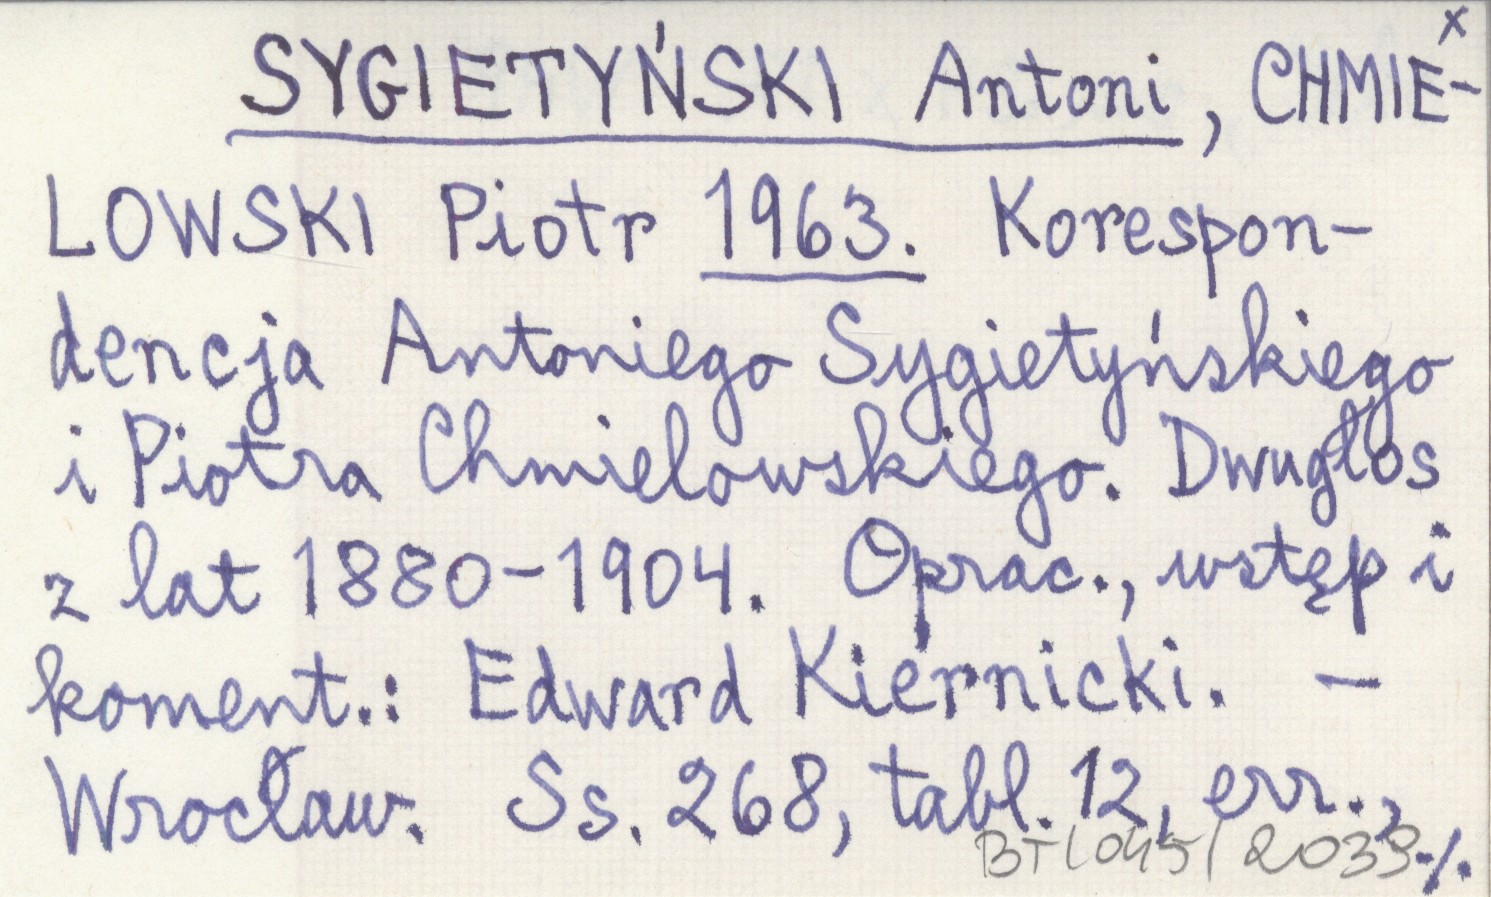 x
SYGIETYŃSKI Antoni, CHMIE-
LOWSKI Piotr 1963. Korespon-
dencja Antoniego Sygietyńskiego
i Piotra Chmielowskiego. Dwugłos
z lat 1880-1904. Oprac., wstęp i
koment.: Edward Kiernicki. -
Wrocław. Ss. 268, tabl. 12, err.,
BTL045/2033 ./.